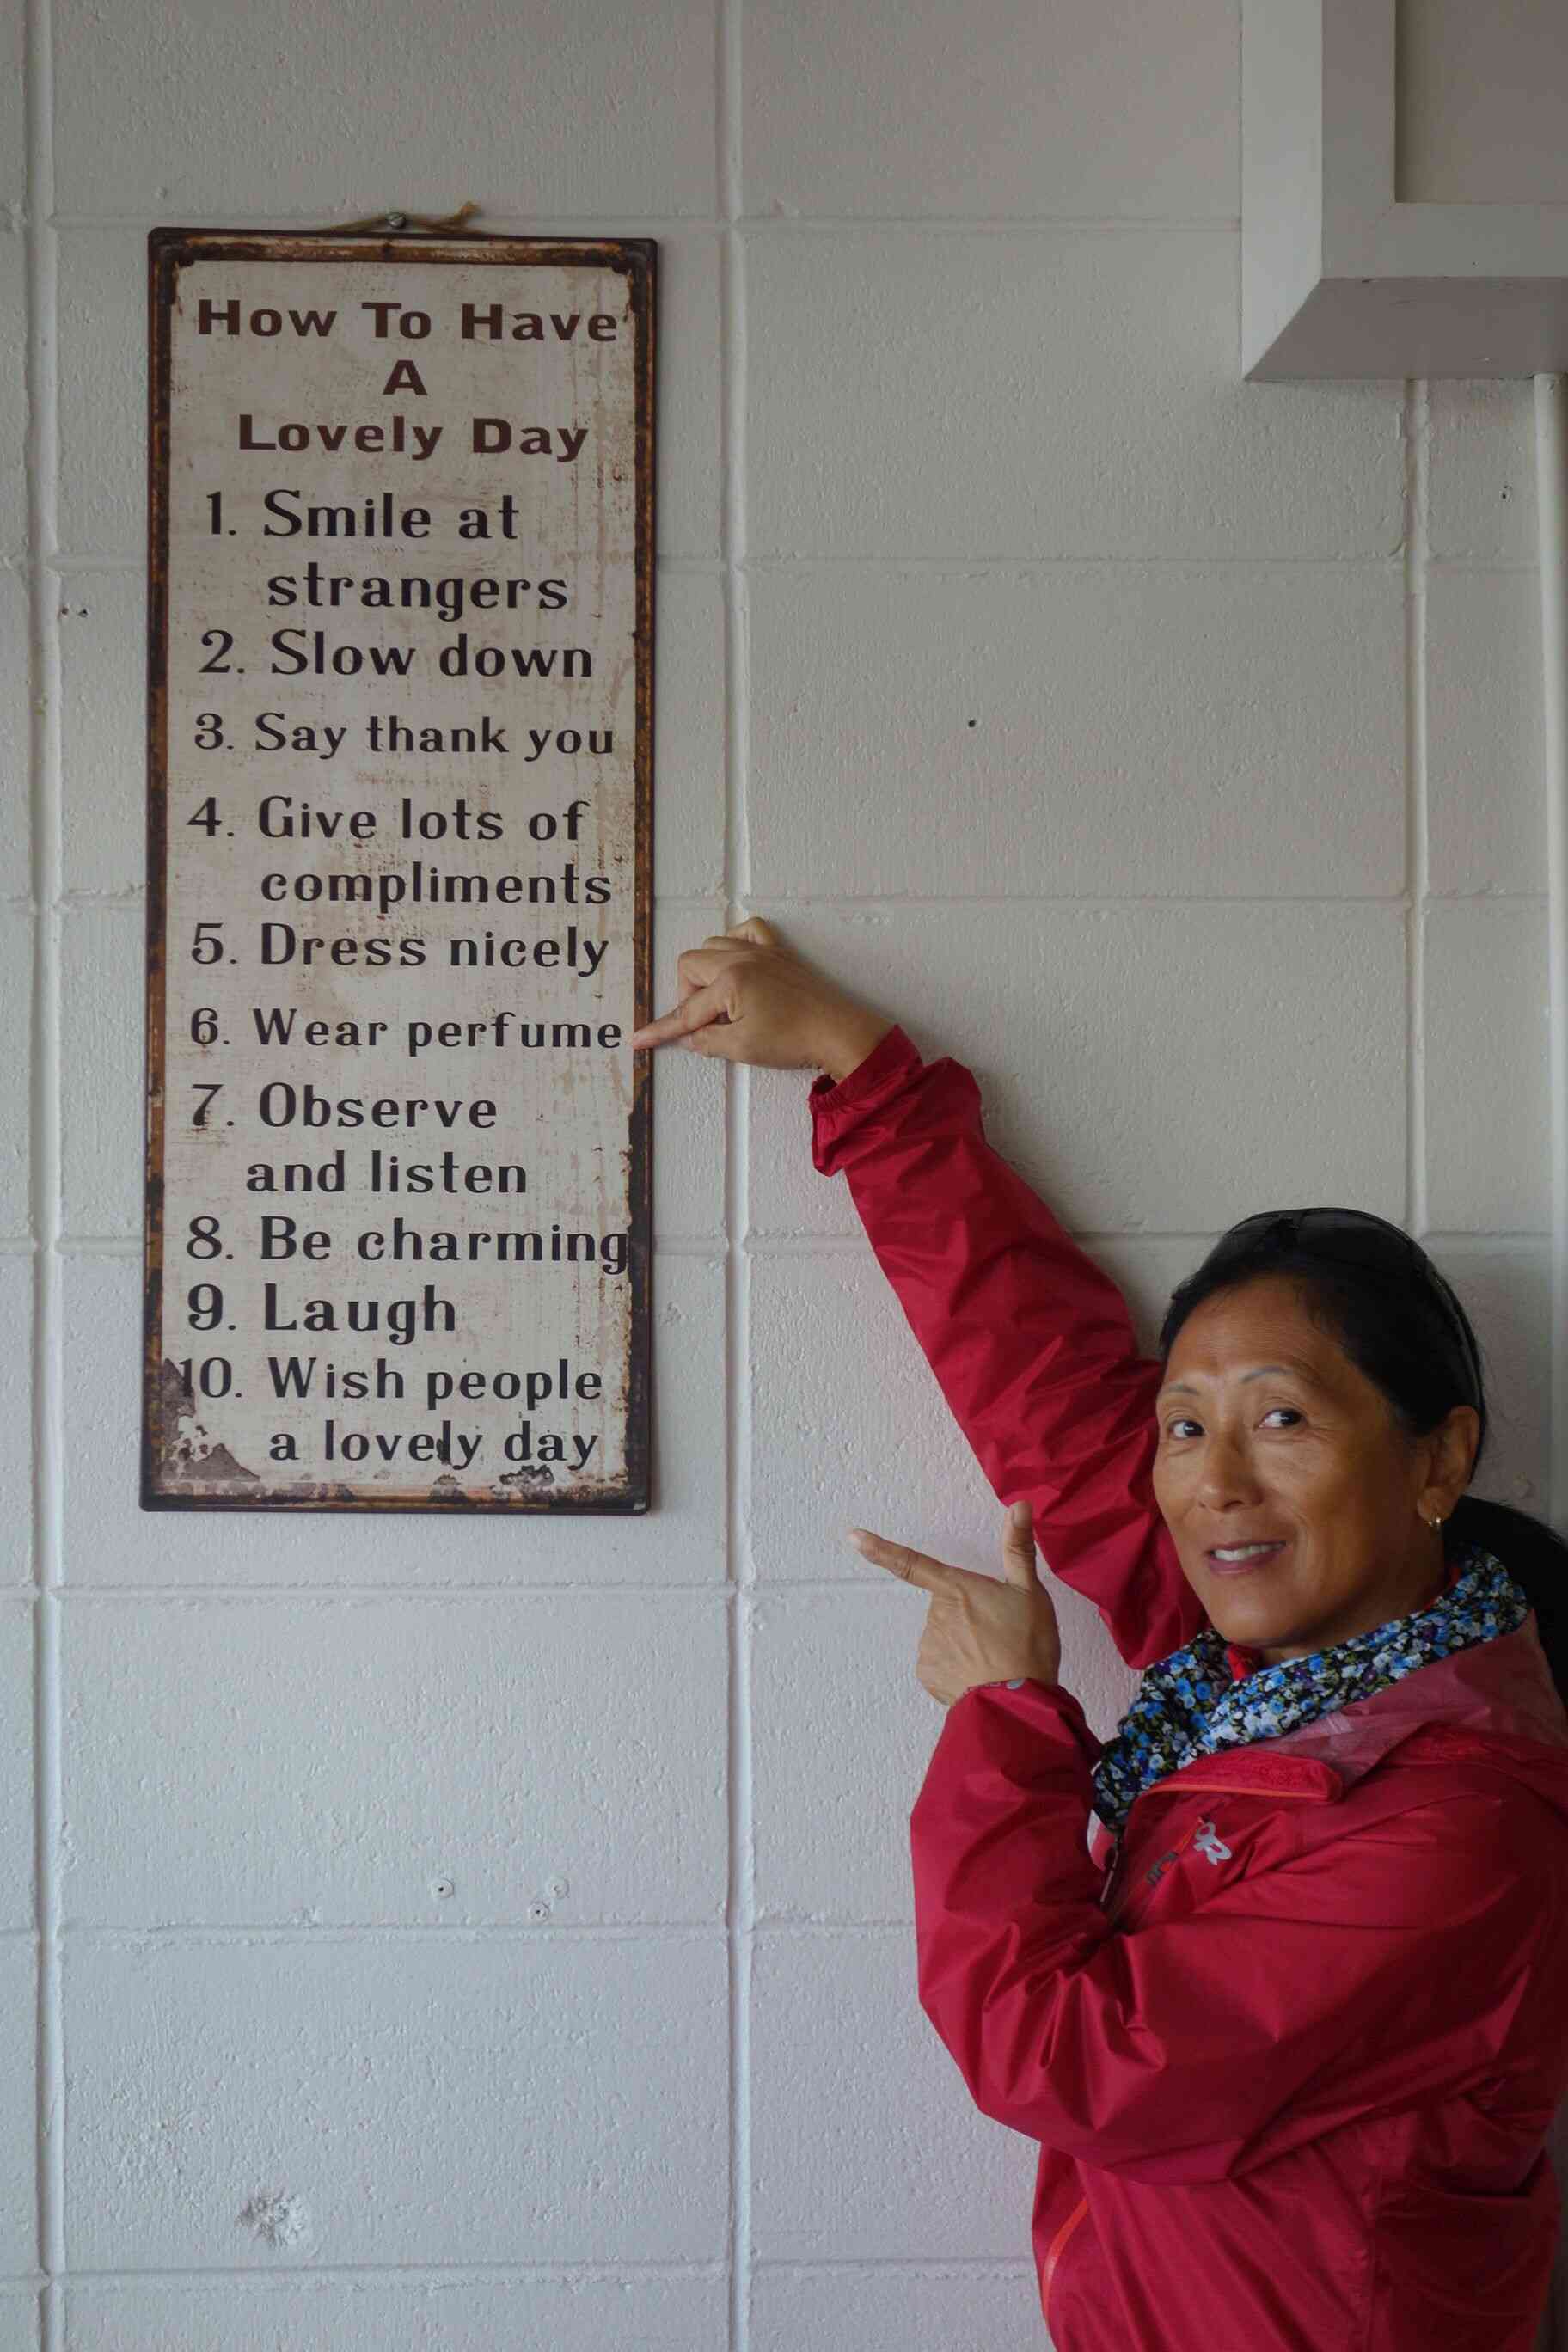 How To Have
A
Lovely Day
1. Smile at
strangers
2. Slow down
3. Say thank you
4. Give lots of
compliments
5. Dress nicely
6. Wear perfume
7. Observe
and listen
8. Be charming
9. Laugh
10. Wish people
a lovely day
OR